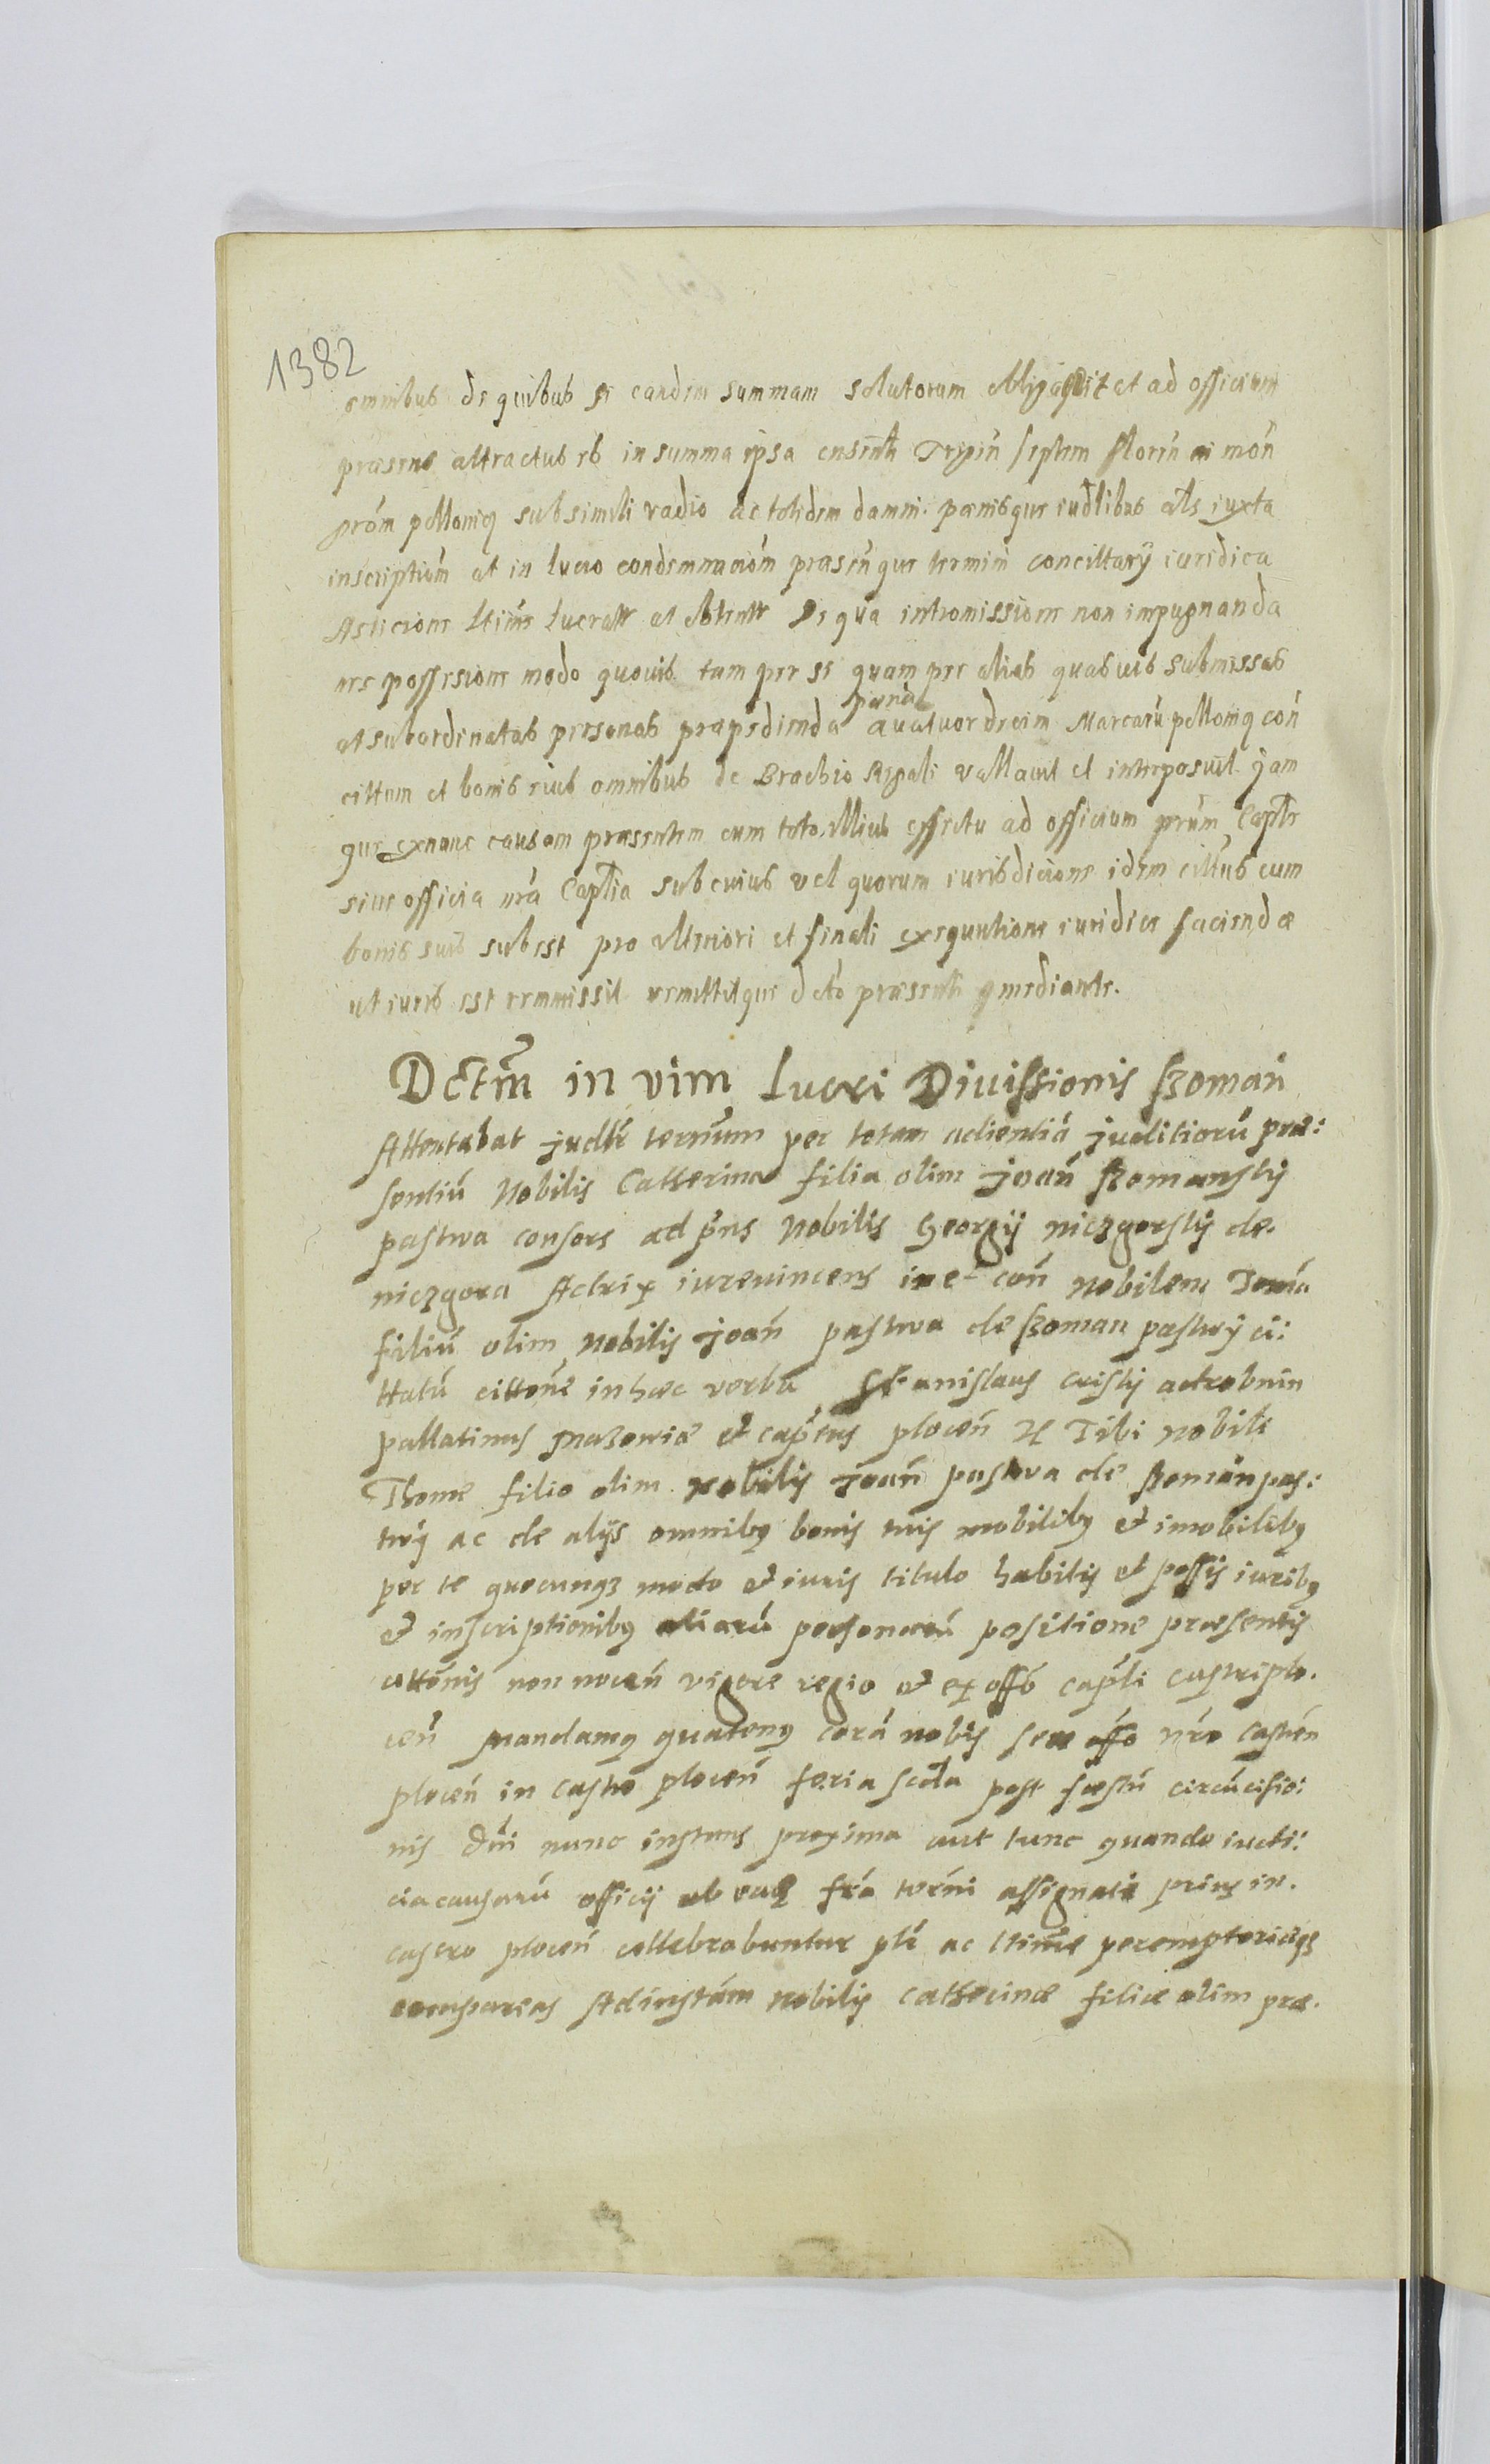 1382
omnibus de quibus si eandem summam soluturum obligavit et ad officium
præsens attractus es in summa ipsa censenti Trigin septem floren mon
prom polloniq sub simili vadio ac totidem damni pœnisque iudlibus als iuxta
inscriptiom at in lucro condemnaciom præsenque termini concittarÿ iuridica
Asticione ltime lucratr at obtentr De qua intromissione non impugnanda
nec possessione modo quovis tam per se quam per alias quasvis submissas
at subordinatas personas præpedienda pœna quatuordecim Marcarū polloniq con
cittum et bonis eius omnibus de Brachio Regali vallavit et interposuit jam
que exnunc causam præsentem cum toto illius effectu ad officium prūm Captr
siue officia nra Captia sub cuius vel quorum iurisdicione idem cittus cum
bonis suis subest pro ulteriori et finali exequutione iuridica facienda
ut iuris est remmissit remittitque dcto præsenti mediante.
Dctm in vim Lucri Diuissionis Szoman
Attentabat judlr ternum per totam adientiā juditiorū præ:
sentiū Nobilis Catherina filia olim joan Szomanskÿ
pastwa consors ad pns Nobilis Georgÿ niezgorskÿ de
niezgora Actrix iurevincens in et con Nobilem Tomā
filiū olim Nobilis Joan pastwa de Szoman pastwÿ ci:
ttatū cittone in hæc verba Stanislaus criskÿ a drobnin
pallatinus Mazowiæ et capeus plocen H Tibi Nobili
Thome filio olim Nobilis Joan pastwa de Szoman pas:
twÿ ac de alÿs omnibq bonis tuis mobilibq et imobilibq
per te quocunqz modo et iuris titulo habitis et possis iuribq
et inscriptionibq aliarū personarū positione præsentis
cittonis non nocen vigore regio et ex offo capli castri plo.
cen Mandamq quatenq corā nobis seu offo nro castren
plocen in castro plocen feria scda post fæstū circūcisio:
nis Dni nunc instans proxima aut tunc quando iudi:
cia causarū officÿ ob eaq fra termi assignati prius in.
castro plocen cellebrabuntur plr ac ltime peremptorieqz
compareas Ad instam Nobilis Catherinæ filiæ olim præ.